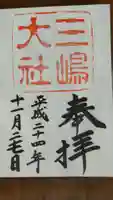 奉拝
三嶋
大社
平成二十四年
十一月二七日